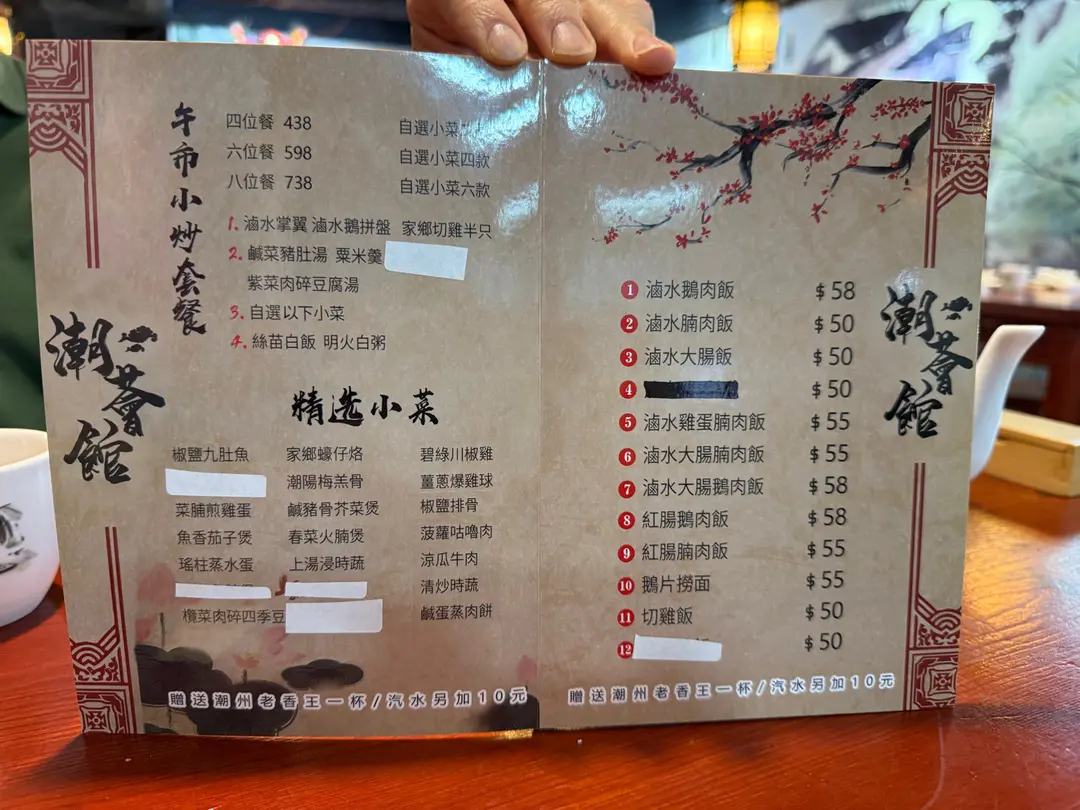 潮薈館
午市小炒套餐
四位餐 438 自選小菜
六位餐 598 自選小菜四款
八位餐 738 自選小菜六款
1. 滷水掌翼 滷水鵝拼盤 家鄉切雞半只
2. 鹹菜豬肚湯 粟米羹
紫菜肉碎豆腐湯
3. 自選以下小菜
4. 絲苗白飯 明火白粥
精选小菜
椒鹽九肚魚 家鄉蠔仔烙 碧綠川椒雞
潮陽梅羔骨 薑蔥爆雞球
菜脯煎雞蛋 鹹豬骨芥菜煲 椒鹽排骨
魚香茄子煲 春菜火腩煲 菠蘿咕嚕肉
瑤柱蒸水蛋 上湯浸時蔬 涼瓜牛肉
清炒時蔬
欖菜肉碎四季豆 鹹蛋蒸肉餅
贈送潮州老香王一杯/汽水另加10元
1 滷水鵝肉飯 $58
2 滷水腩肉飯 $50
3 滷水大腸飯 $50
4 $50
5 滷水雞蛋腩肉飯 $55
6 滷水大腸腩肉飯 $55
7 滷水大腸鵝肉飯 $58
8 紅腸鵝肉飯 $58
9 紅腸腩肉飯 $55
10 鵝片撈面 $55
11 切雞飯 $50
12 $50
潮薈館
贈送潮州老香王一杯/汽水另加10元